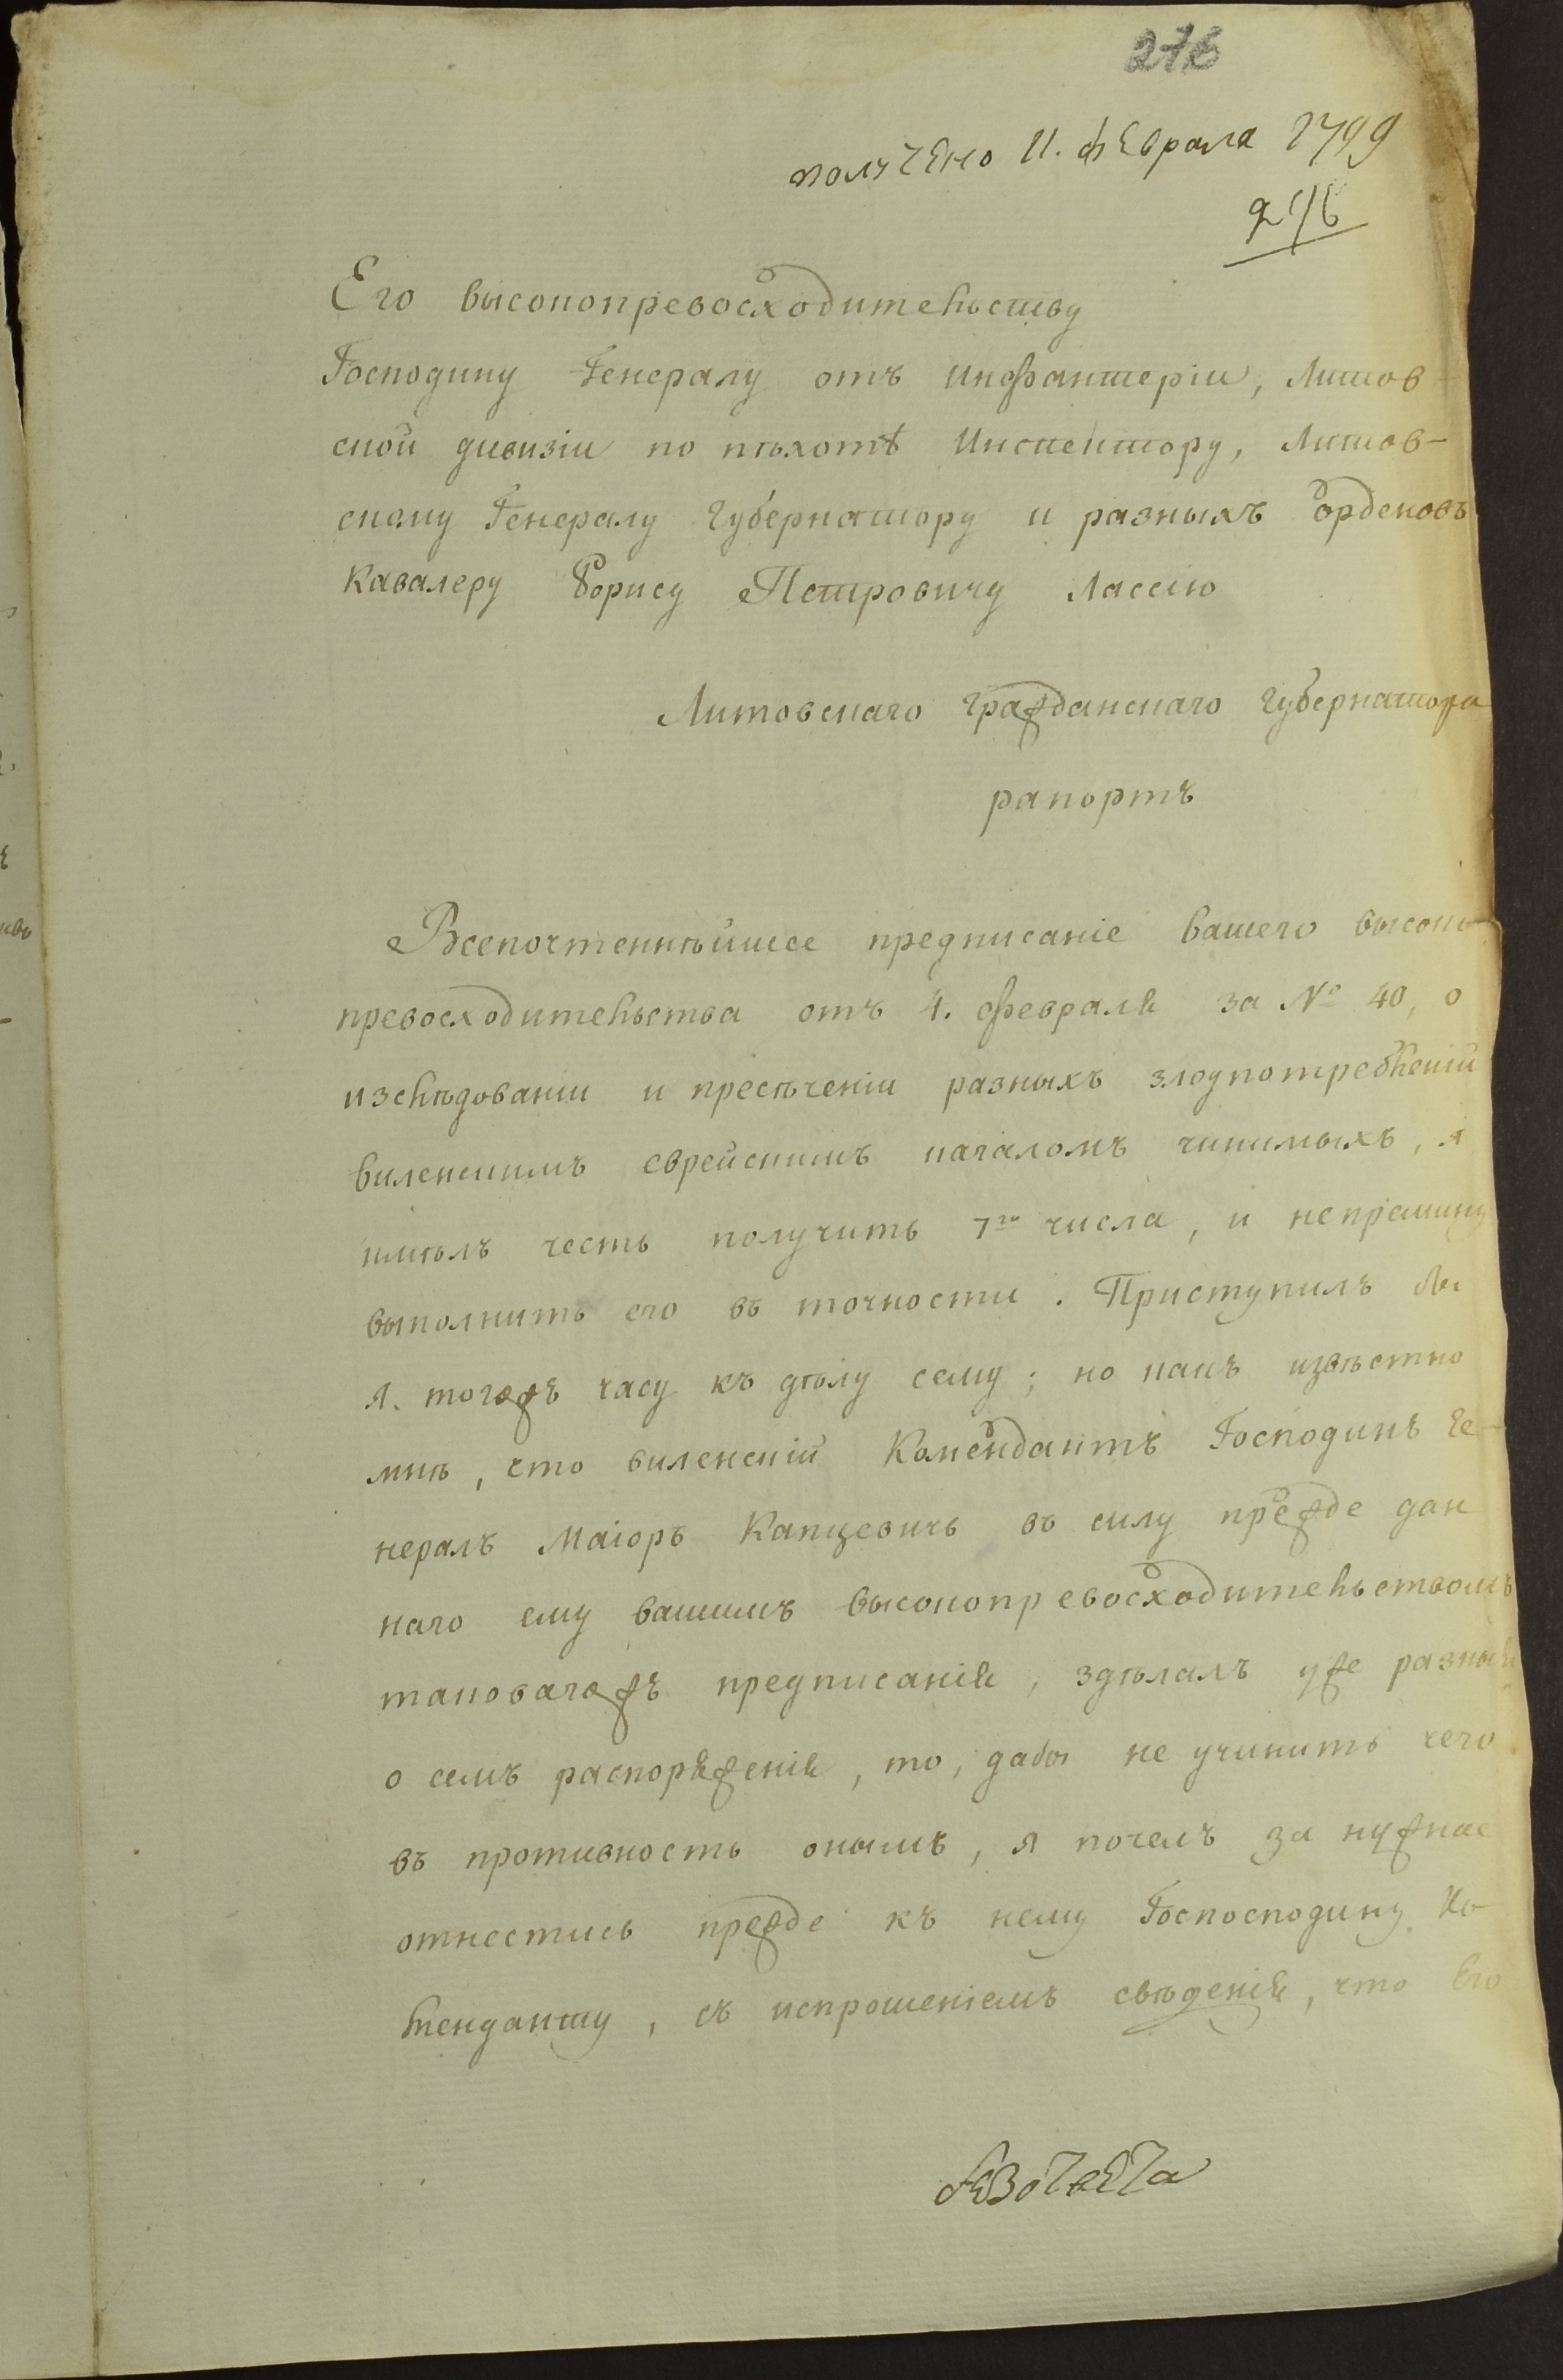 276
получено 11. февраля 1799
276
Его высокопревосходительству
Господину Генералу отъ Инфантеріи, Литов-
ской дивизіи по пѣхотѣ Инспектору, Литов-
скому Генералу Губернатору и разныхъ орденовъ
Кавалеру Борису Петровичу Лассію
Литовскаго гражданскаго губернатора
рапортъ
Всепочтеннѣйшее предписаніе вашего высоко-
превосходительства отъ 4. февраля за № 40, о
изслѣдованіи и пресѣченіи разныхъ злоупотребленій
виленскимъ еврейскимъ кагаломъ чинимыхъ, я
имѣлъ честь получить 7го числа, и непремину
выполнить его въ точности. Приступилъ бы
я. тогожъ часу къ дѣлу сему; но какъ извѣстно
мнѣ, что виленскій Комендантъ Господинъ Ге-
нералъ Маіоръ Капцевичь въ силу прежде дан
наго ему вашимъ высокопревосходительствомъ
таковагожъ предписанія, здѣлалъ уже разныя
о семъ распоряженія, то, дабы не учинить чего
въ противность онымъ, я почелъ за нужное
отнестись прежде къ нему Госпосподину Ко-
менданту, съ испрошеніемъ свѣденія, что Его